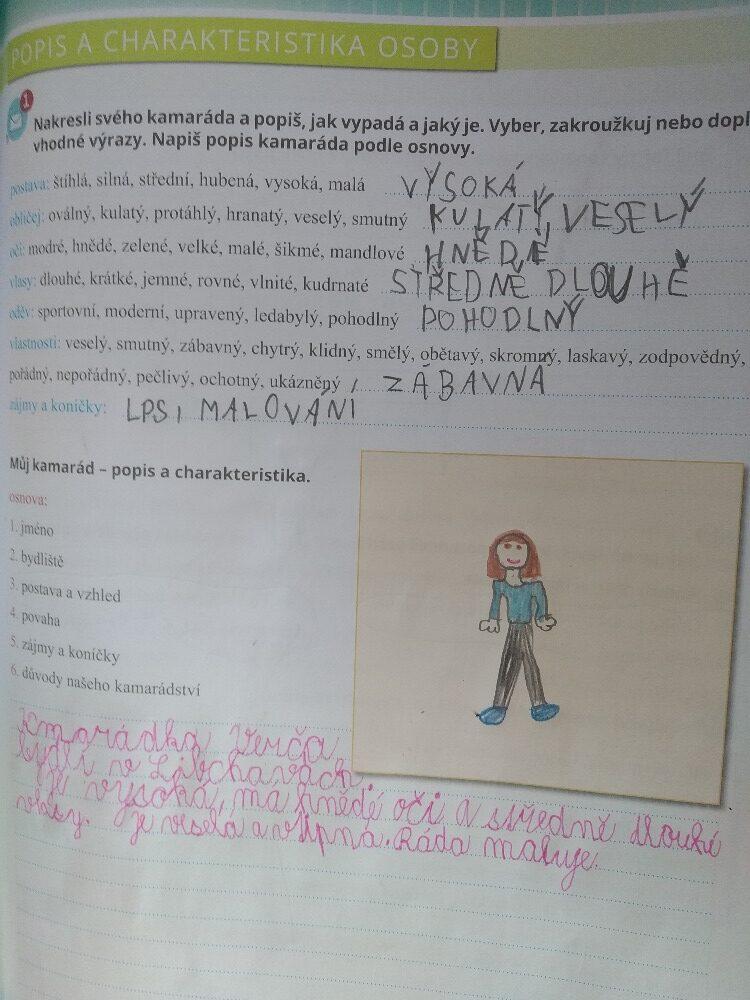 POPIS A CHARAKTERISTIKA OSOBY
1
Nakresli svého kamaráda a popiš, jak vypadá a jaký je. Vyber, zakroužkuj nebo dopl
vhodné výrazy. Napiš popis kamaráda podle osnovy.
postava: štíhlá, silná, střední, hubená, vysoká, malá VYSOKÁ
obličej: oválný, kulatý, protáhlý, hranatý, veselý, smutný KULATÝ, VESELÝ
oči: modré, hnědé, zelené, velké, malé, šikmé, mandlové HNĚDÉ
vlasy: dlouhé, krátké, jemné, rovné, vlnité, kudrnaté STŘEDNĚ DLOUHÉ
oděv: sportovní, moderní, upravený, ledabylý, pohodlný POHODLNÝ
vlastnosti: veselý, smutný, zábavný, chytrý, klidný, smělý, obětavý, skromný, laskavý, zodpovědný,
pořádný, nepořádný, pečlivý, ochotný, ukázněný, ZÁBAVNÁ
zájmy a koníčky: LPS, MALOVÁNI
Můj kamarád – popis a charakteristika.
osnova:
1. jméno
2. bydliště
3. postava a vzhled
4. povaha
5. zájmy a koníčky
6. důvody našeho kamarádství
Kmarádka Verča
bydlí v Libchavách.
Je vysoká, ma hnědé oči a středně dlouhé
vlasy. Je vesela a vtipná. Ráda maluje.